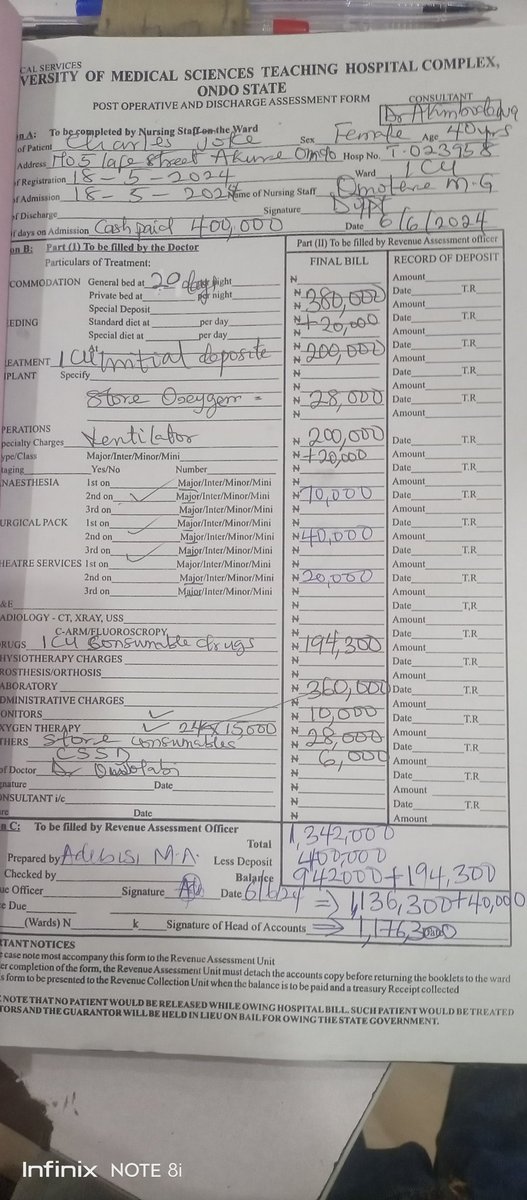 CAL SERVICES
VERSITY OF MEDICAL SCIENCES TEACHING HOSPITAL COMPLEX,
ONDO STATE
POST OPERATIVE AND DISCHARGE ASSESSMENT FORM
CONSULTANT
n A: To be completed by Nursing Staff on the Ward
of Patient Charles Joke Sex Female Age 40yrs
Address Street Akure Hosp No. T-023958
of Registration 18-5-2024 Ward ICU
of Admission 18-5-2024 Name of Nursing Staff M.G
of Discharge Signature
f days on Admission Cash paid 400,000 Date 6/6/2024
on B: Part (1) To be filled by the Doctor Part (II) To be filled by Revenue Assessment officer
Particulars of Treatment: FINAL BILL RECORD OF DEPOSIT
COMMODATION General bed at 20 days night N Amount
Private bed at per night N 380,000 Date T.R
Special Deposit N Amount
EEDING Standard diet at per day N +20,000 Date T.R
Special diet at per day N Amount
EATMENT ICU initial deposite N 200,000 Date T.R
PLANT Specify N Amount
Store Oxeygen = N 28,000 Date T.R
N Amount
PERATIONS
pecialty Charges Ventilator N 200,000 Date T.R
ype/Class Major/Inter/Minor/Mini N +20,000 Amount
taging Yes/No Number N Date T.R
NAESTHESIA 1st on Major/Inter/Minor/Mini N Amount
2nd on Major/Inter/Minor/Mini N 70,000 Date T.R
3rd on Major/Inter/Minor/Mini N Amount
URGICAL PACK 1st on Major/Inter/Minor/Mini N Date T.R
2nd on Major/Inter/Minor/Mini N 40,000 Amount
3rd on Major/Inter/Minor/Mini N Date T.R
HEATRE SERVICES 1st on Major/Inter/Minor/Mini N Amount
2nd on Major/Inter/Minor/Mini N 20,000 Date T.R
3rd on Major/Inter/Minor/Mini N Amount
&E N Date T.R
ADIOLOGY - CT, XRAY, USS N Amount
C-ARM/FLUOROSCROPY N Date T.R
RUGS ICU Consumable drugs N 194,300 Amount
HYSIOTHERAPY CHARGES N Date T.R
ROSTHESIS/ORTHOSIS N Amount
ABORATORY N 360,000 Date T.R
DMINISTRATIVE CHARGES N Amount
ONITORS N 10,000 Date T.R
XYGEN THERAPY 24 x 15000 N 28,000 Amount
THERS Store consumables N Date T.R
CSSD N 6,000 Amount
of Doctor Dr N Date T.R
gnature Date N Amount
ONSULTANT i/c N Date T.R
re Date N Amount
n C: To be filled by Revenue Assessment Officer
Total 1,342,000
Prepared by Adebisi M.A. Less Deposit 400,000
Checked by Balance 942000+194,300
ue Officer Signature Date 6/6/24 ⇒ 1,136,300+40,000
e Due
(Wards) N k Signature of Head of Accounts ⇒ 1,176,300
RTANT NOTICES
e case note most accompany this form to the Revenue Assessment Unit
er completion of the form, the Revenue Assessment Unit must detach the accounts copy before returning the booklets to the ward
s form to be presented to the Revenue Collection Unit when the balance is to be paid and a treasury Receipt collected
NOTE THAT NO PATIENT WOULD BE RELEASED WHILE OWING HOSPITAL BILL. SUCH PATIENT WOULD BE TREATED
TORS AND THE GUARANTOR WILL BE HELD IN LIEU ON BAIL FOR OWING THE STATE GOVERNMENT.
Infinix NOTE 8i